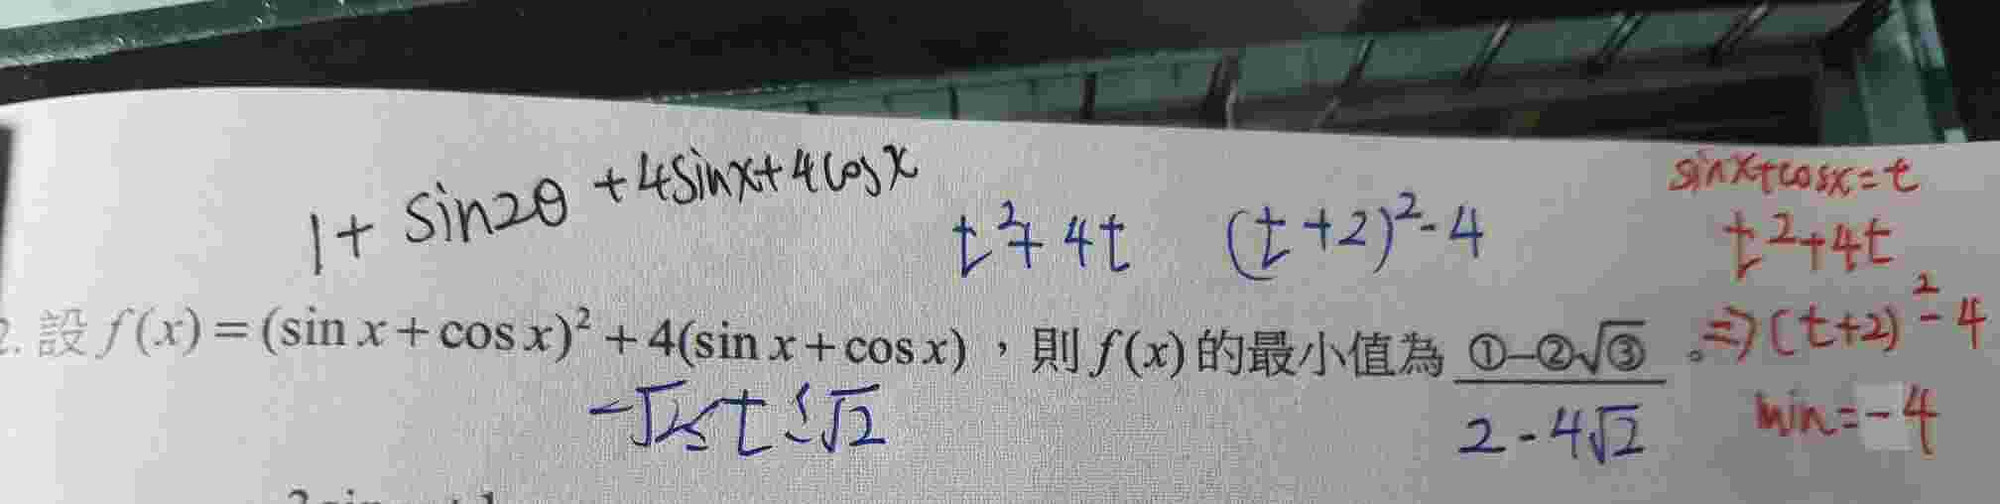 1 + sin2θ + 4sinx + 4cosx
t² + 4t
(t + 2)² - 4
sinx+cosx = t
t² + 4t
⇒ (t+2)² - 4
min = -4
2. 設 f(x) = (sin x + cos x)² + 4(sin x + cos x)，則 f(x) 的最小值為 ①–②√③ 。
-√2 ≤ t ≤ √2
2 - 4√2